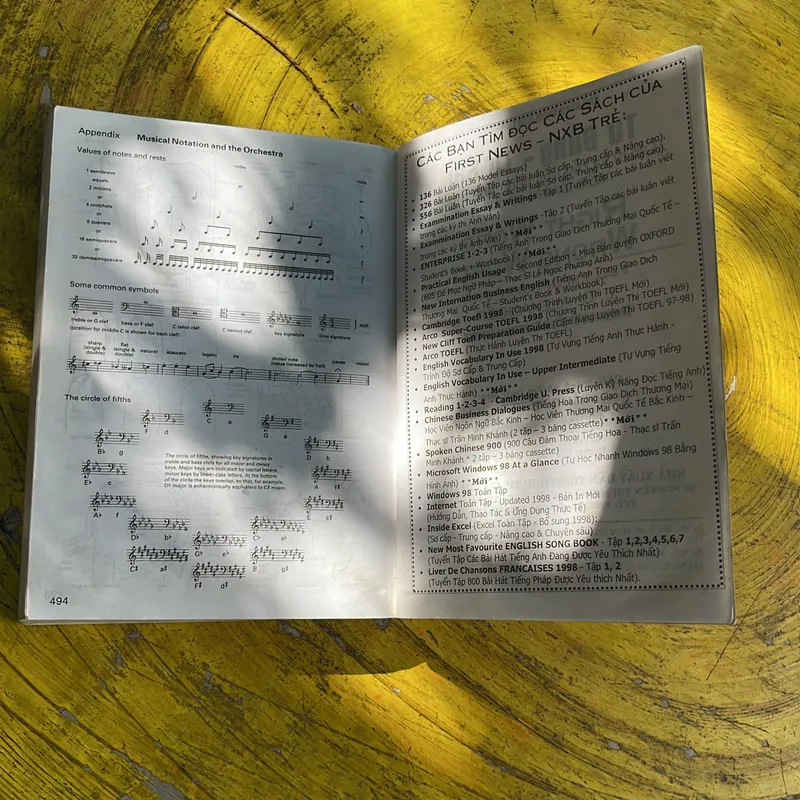 Appendix Musical Notation and the Orchestra
Values of notes and rests
notes
rests
1 semibreve
equals
2 minims
or
4 crotchets
or
8 quavers
or
16 semiquavers
or
32 demisemiquavers
Some common symbols
treble or G clef bass or F clef C (alto) clef C (tenor) clef key signature time signature staff
(position for middle C is shown for each clef)
sharp (single & double) flat (single & double) natural staccato legato tie dotted note (value increased by half) pause repeat
The circle of fifths
C a
F d
G e
B♭ g
D b
E♭ c
A f♯
A♭ f
E c♯
D♭ b♭
C♯ a♯
G♭ e♭
F♯ d♯
B g♯
The circle of fifths, showing key signatures in
treble and bass clefs for all major and minor
keys. Major keys are indicated by capital letters,
minor keys by lower-case letters. At the bottom
of the circle the keys overlap, so that, for example,
D♭ major is enharmonically equivalent to C♯ major.
494
CÁC BẠN TÌM ĐỌC CÁC SÁCH CỦA
FIRST NEWS – NXB TRẺ:
• 136 Bài Luận (136 Model Essays)
• 326 Bài Luận (Tuyển Tập các bài luận Sơ cấp, Trung cấp & Nâng cao).
• 556 Bài Luận (Tuyển Tập các bài luận Sơ cấp, Trung cấp & Nâng cao).
• Exammination Essay & Writings -Tập 1 (Tuyển Tập các bài luận viết
trong các kỳ thi Anh Văn)
• Exammination Essay & Writings -Tập 2 (Tuyển Tập các bài luận viết
trong các kỳ thi Anh Văn) **Mới**
• ENTERPRISE 1-2-3 (Tiếng Anh Trong Giao Dịch Thương Mại Quốc Tế –
Student's Book + Workbook) **Mới**
• Practical English Usage - Second Edition – Mua Bản quyền OXFORD
(605 Đề Mục Ngữ Pháp – Thạc Sĩ Lê Ngọc Phương Anh)
• New Internation Business English (Tiếng Anh Trong Giao Dịch
Thương Mại Quốc Tế – Student's Book & Workbook)
• Cambridge Toefl 1998 - (Chương Trình Luyện Thi TOEFL Mới)
• Arco Super-Course TOEFL 1998 (Chương Trình Luyện Thi TOEFL Mới)
• New Cliff Toefl Preparation Guide (Cẩm Nang Luyện Thi TOEFL 97-98)
• Arco TOEFL (Thực Hành Luyện Thi TOEFL)
• English Vocabulary In Use 1998 (Tự Vựng Tiếng Anh Thực Hành -
Trình Độ Sơ Cấp & Trung Cấp)
• English Vocabulary In Use – Upper Intermediate (Tự Vựng Tiếng
Anh Thực Hành) **Mới**
• Reading 1-2-3-4 - Cambridge U. Press (Luyện Kỹ Năng Đọc Tiếng Anh)
• Chinese Business Dialogues (Tiếng Hoa Trong Giao Dịch Thương Mại)
Học Viện Ngôn Ngữ Bắc Kinh – Học Viện Thương Mại Quốc Tế Bắc Kinh –
Thạc sĩ Trần Minh Khánh (2 tập – 3 băng cassette) **Mới**
• Spoken Chinese 900 (900 Câu Đàm Thoại Tiếng Hoa - Thạc sĩ Trần
Minh Khánh * 2 tập – 3 băng cassette)
• Microsoft Windows 98 At a Glance (Tự Học Nhanh Windows 98 Bằng
Hình Ảnh) **Mới**
• Windows 98 Toàn Tập
• Internet Toàn Tập - Updated 1998 - Bản In Mới
(Hướng Dẫn, Thao Tác & Ứng Dụng Thức Tế)
• Inside Excel (Excel Toàn Tập - Bổ sung 1998):
(Sơ cấp - Trung cấp - Nâng cao & Chuyên sâu)
• New Most Favourite ENGLISH SONG BOOK - Tập 1,2,3,4,5,6,7
(Tuyển Tập Các Bài Hát Tiếng Anh Đang Được Yêu Thích Nhất)
• Liver De Chansons FRANCAISES 1998 - Tập 1, 2
(Tuyển Tập 800 Bài Hát Tiếng Pháp Được Yêu thích Nhất).